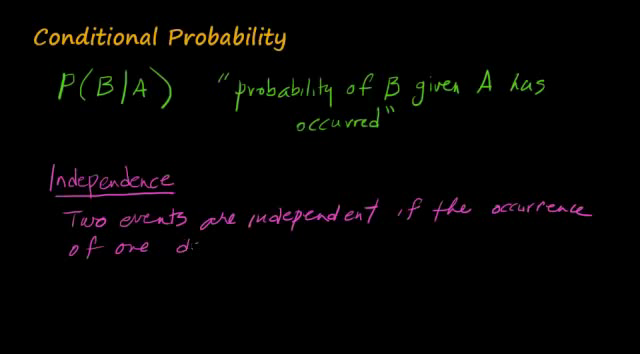 Conditional Probability
P(B|A) "probability of B given A has
occurred"
Independence
Two events are independent if the occurrence
of one di